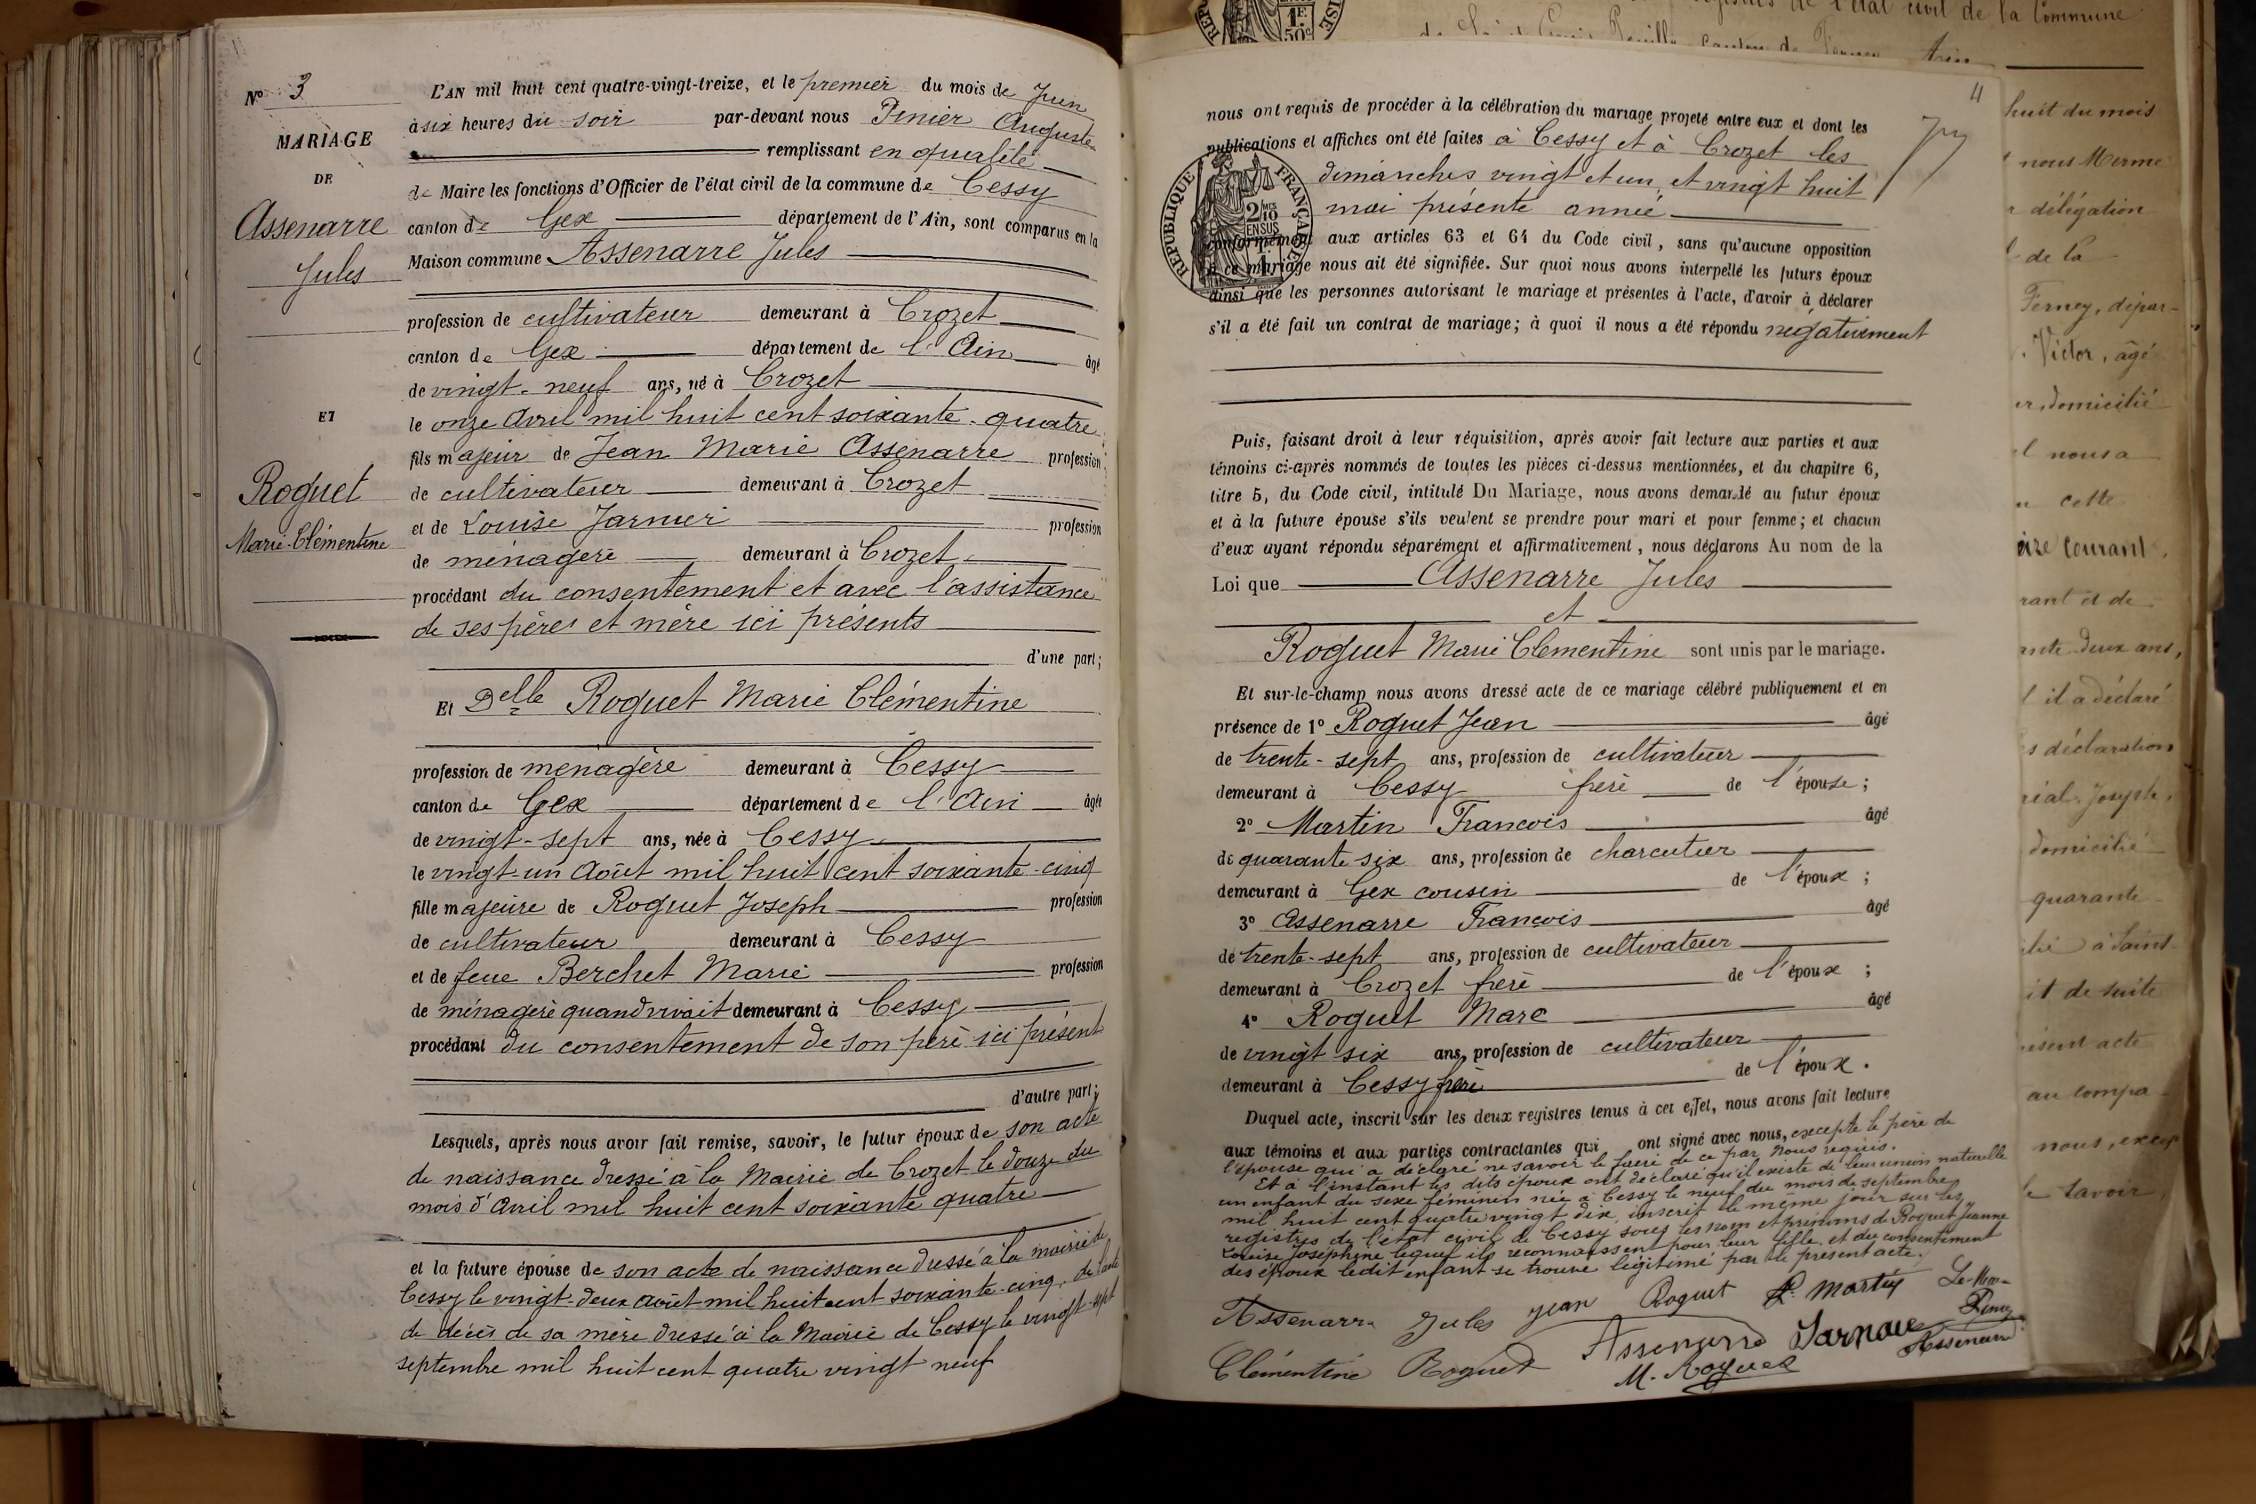 N° 3
MARIAGE
DE
Assenarre
Jules
ET
Roguet
Marie-Clémentine
L'AN mil huit cent quatre-vingt-treize, et le premier du mois de Juin
à six heures du soir par-devant nous Pinier Auguste
remplissant en qualité
de Maire les fonctions d'Officier de l'état civil de la commune de Cessy
canton de Gex département de l'Ain, sont comparus en la
Maison commune Assenarre Jules
profession de cultivateur demeurant à Crozet
canton de Gex département de l'Ain âgé
de vingt-neuf ans, né à Crozet
le onze Avril mil huit cent soixante-quatre
fils majeur de Jean Marie Assenarre profession
de cultivateur demeurant à Crozet
et de Louise Jarnier profession
de ménagère demeurant à Crozet
procédant du consentement et avec l'assistance
de ses père et mère ici présents
d'une part;
Et Delle Roguet Marie Clémentine
profession de ménagère demeurant à Cessy
canton de Gex département de l'Ain âgée
de vingt-sept ans, née à Cessy
le vingt-un Août mil huit cent soixante-cinq
fille majeure de Roguet Joseph profession
de cultivateur demeurant à Cessy
et de feue Berchet Marie profession
de ménagère quand vivait demeurant à Cessy
procédant du consentement de son père ici présent
d'autre part;
Lesquels, après nous avoir fait remise, savoir, le futur époux de son acte
de naissance dressé à la Mairie de Crozet le douze du
mois d'Avril mil huit cent soixante quatre
et la future épouse de son acte de naissance dressé à la mairie de
Cessy le vingt-deux août mil huit cent soixante-cinq, de l'acte
de décès de sa mère dressé à la Mairie de Cessy le vingt-sept
septembre mil huit cent quatre vingt neuf
4
nous ont requis de procéder à la célébration du mariage projeté entre eux et dont les
publications et affiches ont été faites à Cessy et à Crozet les
dimanches vingt et un, et vingt huit
mai présente année
RÉPUBLIQUE FRANÇAISE
2/10 EN SUS
conformément aux articles 63 et 64 du Code civil, sans qu'aucune opposition
à ce mariage nous ait été signifiée. Sur quoi nous avons interpellé les futurs époux
ainsi que les personnes autorisant le mariage et présentes à l'acte, d'avoir à déclarer
s'il a été fait un contrat de mariage; à quoi il nous a été répondu négativement
Puis, faisant droit à leur réquisition, après avoir fait lecture aux parties et aux
témoins ci-après nommés de toutes les pièces ci-dessus mentionnées, et du chapitre 6,
titre 5, du Code civil, intitulé Du Mariage, nous avons demandé au futur époux
et à la future épouse s'ils veulent se prendre pour mari et pour femme; et chacun
d'eux ayant répondu séparément et affirmativement, nous déclarons Au nom de la
Loi que Assenarre Jules
et
Roguet Marie Clémentine sont unis par le mariage.
Et sur-le-champ nous avons dressé acte de ce mariage célébré publiquement et en
présence de 1° Roguet Jean âgé
de trente-sept ans, profession de cultivateur
demeurant à Cessy frère de l'épouse;
2° Martin François âgé
de quarante six ans, profession de charcutier
demeurant à Gex cousin de l'époux;
3° Assenarre François âgé
de trente-sept ans, profession de cultivateur
demeurant à Crozet frère de l'époux;
4° Roguet Marc âgé
de vingt six ans, profession de cultivateur
demeurant à Cessy frère de l'époux.
Duquel acte, inscrit sur les deux registres tenus à cet effet, nous avons fait lecture
aux témoins et aux parties contractantes qui ont signé avec nous, excepté le père de
l'épouse qui a déclaré ne savoir le faire de ce par Nous requis.
Et à l'instant les dits époux ont déclaré qu'il existe de leur union naturelle
un enfant du sexe féminin née à Cessy le neuf du mois de septembre
mil huit cent quatre vingt dix, inscrit le même jour sur les
registres de l'état civil de Cessy sous les nom et prénoms de Roguet Jeanne
Louise Joséphine lequel ils reconnaissent pour leur fille, et du consentement
des époux ledit enfant se trouve légitimé par le présent acte.
Assenarre Jules Jean Roguet F. Martin Le Maire
Pinier
Clémentine Roguet Assenarre Jarnier Assenarre
M. Roguet
de l'état civil de la Commune
huit du mois
nous Merme
délégation
de la
Ferney, dépar-
Victor, âgé
domicilié
nous a
cette
courant
rant et de
ante deux ans,
il a déclaré
déclaration
Joseph,
domicilié
quarante
à Saint
it de suite
acte
au compa
nous, excep
savoir